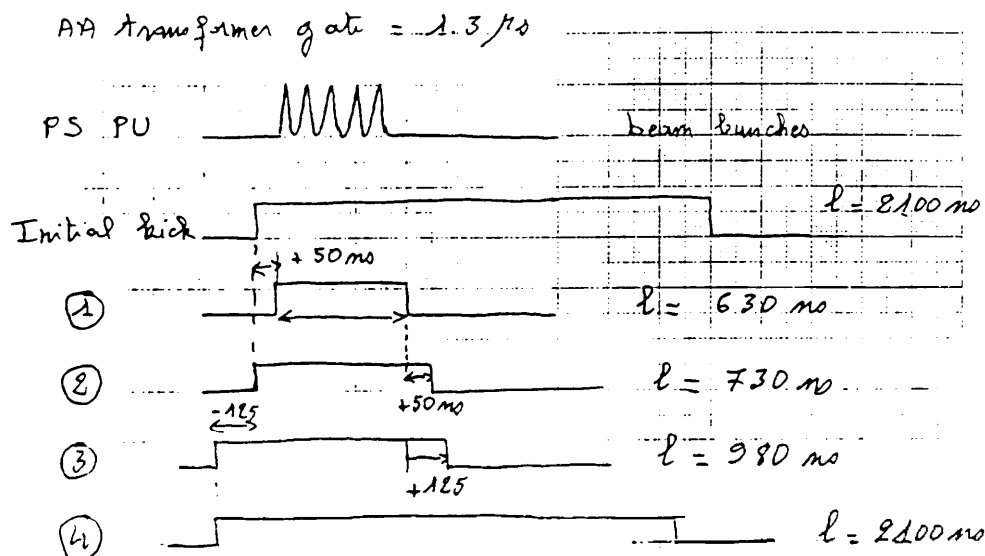 AA transformer gate = 1.3 μs
PS PU
beam bunches
Initial kick
l = 2100 ns
+ 50 ns
1
l = 630 ns
2
+50 ns
l = 730 ns
-125
3
+125
l = 980 ns
4
l = 2100 ns